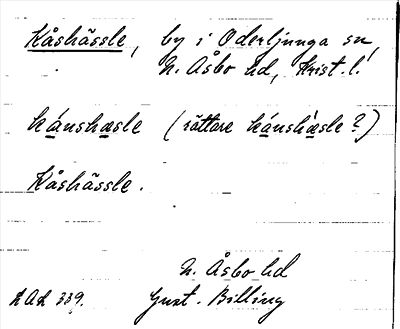 Kåshässle, by i Oderljunga sn,
N. Åsbo hd, Krist. l.
kánshæsle (rättare kánshæ̀sle?)
Kåshässle.
N. Åsbo hd
LAL 339. Gust. Billing